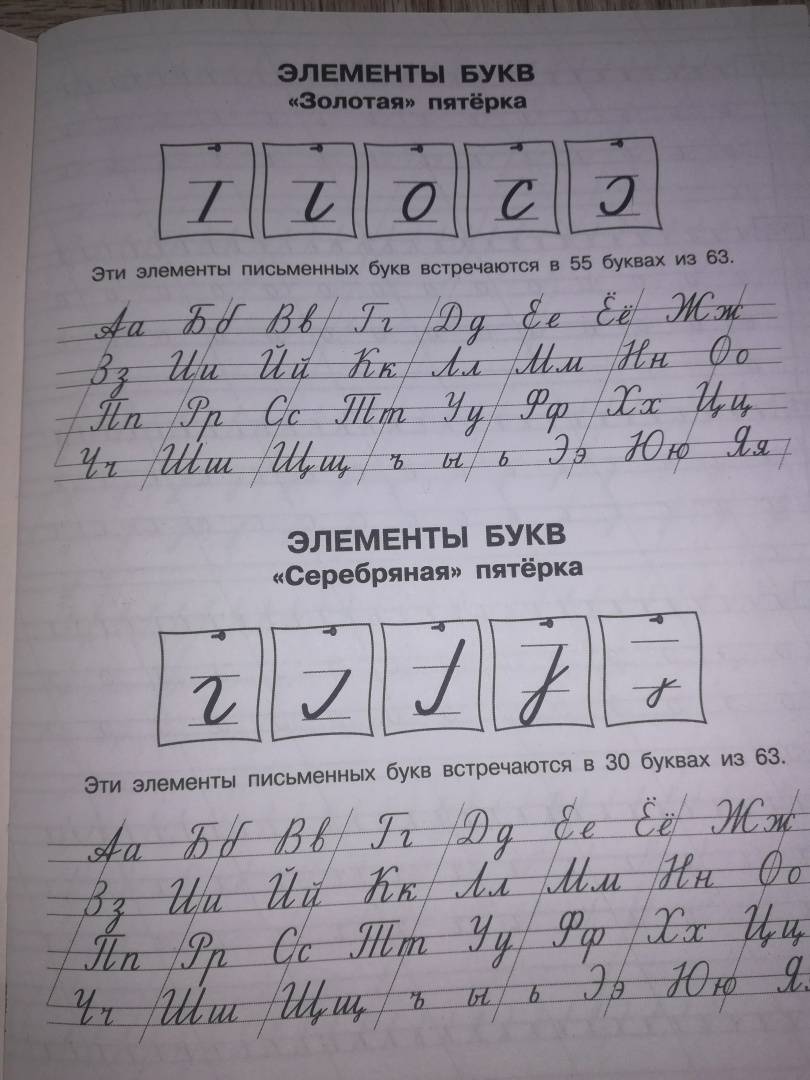 ЭЛЕМЕНТЫ БУКВ
«Золотая» пятёрка
Эти элементы письменных букв встречаются в 55 буквах из 63.
Аа Бб Вв Гг Дд Ее Ёё Жж
Зз Ии Йй Кк Лл Мм Нн Оо
Пп Рр Сс Тт Уу Фф Хх Цц
Чч Шш Щщ ъ ы ь Ээ Юю Яя
ЭЛЕМЕНТЫ БУКВ
«Серебряная» пятёрка
Эти элементы письменных букв встречаются в 30 буквах из 63.
Аа Бб Вв Гг Дд Ее Ёё Жж
Зз Ии Йй Кк Лл Мм Нн Оо
Пп Рр Сс Тт Уу Фф Хх Цц
Чч Шш Щщ ъ ы ь Ээ Юю Я